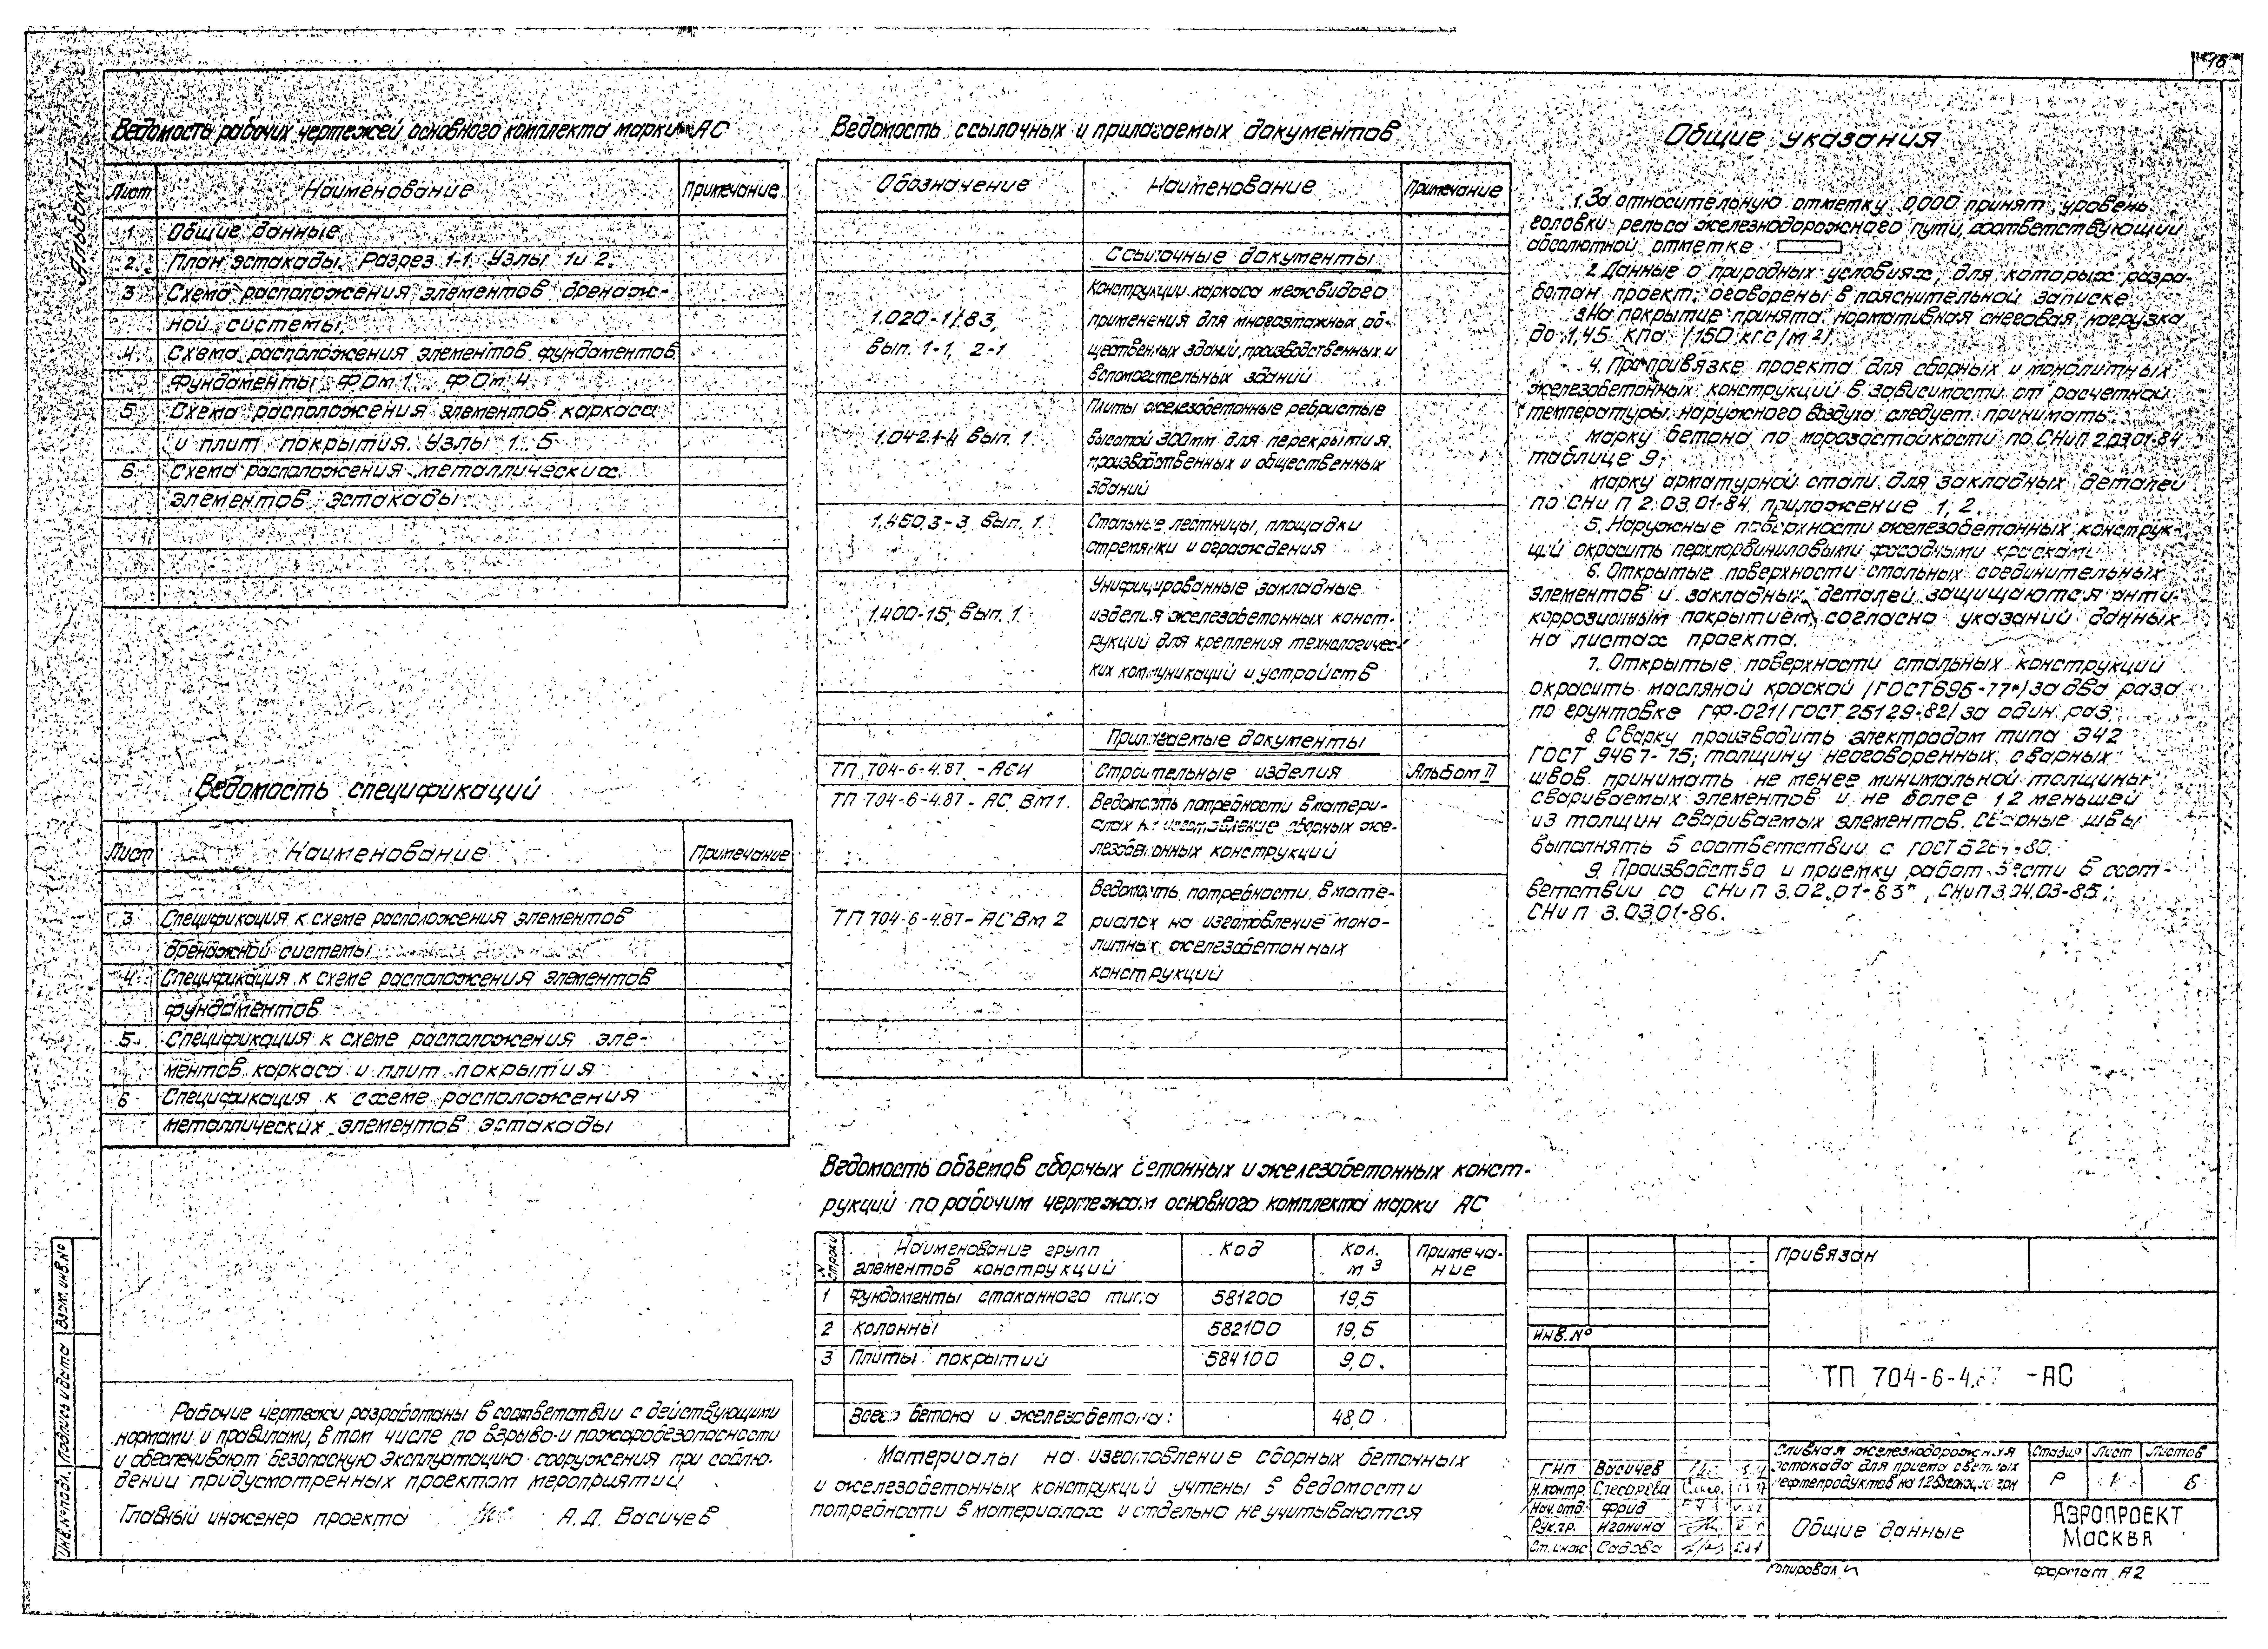 18
Альбом I
Ведомость рабочих чертежей основного комплекта марки АС
Лист Наименование Примечание
1 Общие данные
2 План эстакады. Разрез 1-1. Узлы 1 и 2.
3 Схема расположения элементов дренаж-
ной системы
4 Схема расположения элементов фундаментов
Фундаменты ФОм 1... ФОм 4
5 Схема расположения элементов каркаса
и плит покрытия. Узлы 1...5
6 Схема расположения металлических
элементов эстакады
Ведомость спецификаций
Лист Наименование Примечание
3 Спецификация к схеме расположения элементов
дренажной системы
4 Спецификация к схеме расположения элементов
фундаментов
5 Спецификация к схеме расположения эле-
ментов каркаса и плит покрытия
6 Спецификация к схеме расположения
металлических элементов эстакады
Рабочие чертежи разработаны в соответствии с действующими
нормами и правилами, в том числе по взрыво- и пожаробезопасности
и обеспечивают безопасную эксплуатацию сооружения при соблю-
дении придусмотренных проектом мероприятий
Главный инженер проекта А.Д. Васичев
Ведомость ссылочных и прилагаемых документов
Обозначение Наименование Примечание
Ссылочные документы
Конструкции каркаса межвидого
1.020-1/83, применения для многоэтажных об-
вып. 1-1, 2-1 щественных зданий, производственных и
вспомогательных зданий
Плиты железобетонные ребристые
1.042.1-4 вып. 1 высотой 300мм для перекрытия
производственных и общественных
зданий
1.450.3-3, вып. 1 Стальные лестницы, площадки
стремянки и ограждения
Унифицированные закладные
1.400-15, вып. 1 изделия железобетонных конст-
рукций для крепления технологичес-
ких коммуникаций и устройств
Прилагаемые документы
ТП 704-6-4.87 - АСИ Строительные изделия Альбом II
ТП 704-6-4.87 - АС. ВМ1. Ведомость потребности в матери-
алах на изготовление сборных же-
лезобетонных конструкций
Ведомость потребности в мате-
ТП 704-6-4.87- АС Вм 2 риалах на изготовление моно-
литных железобетонных
конструкций
Ведомость объемов сборных бетонных и железобетонных конст-
рукций по рабочим чертежам основного комплекта марки АС
N строки Наименование групп элементов конструкций Код Кол. м3 Примеча-ние
1 Фундаменты стаканного типа 581200 19,5
2 Колонны 582100 19,5
3 Плиты покрытий 584100 9,0.
Всего бетона и железобетона: 48,0
Материалы на изготовление сборных бетонных
и железобетонных конструкций учтены в ведомости
потребности в материалах и отдельно не учитываются
Общие указания
1. За относительную отметку 0,000 принят уровень
головки рельса железнодорожного пути, соответствующий
абсолютной отметке
2. Данные о природных условиях, для которых разра-
ботан проект, оговорены в пояснительной записке.
3. На покрытие принята нормативная снеговая нагрузка
до 1,45 кПа /150 кгс/м2/.
4. При привязке проекта для сборных и монолитных
железобетонных конструкций в зависимости от расчетной
температуры наружного воздуха следует принимать:
марку бетона по морозостойкости по СНиП 2.03.01-84
таблице 9;
марку арматурной стали для закладных деталей
по СНиП 2.03.01-84 приложение 1, 2.
5. Наружные поверхности железобетонных конструк-
ций окрасить перхлорвиниловыми фасадными красками
6. Открытые поверхности стальных соединительных
элементов и закладных деталей защищаются анти-
коррозионным покрытием, согласно указаний данных
на листах проекта.
7. Открытые поверхности стальных конструкций
окрасить масляной краской /ГОСТ 695-77*/ за два раза
по грунтовке ГФ-021 /ГОСТ 25129-82/ за один раз.
8. Сварку производить электродом типа Э42
ГОСТ 9467-75; толщину неоговоренных сварных
швов принимать не менее минимальной толщины
свариваемых элементов и не более 1.2 меньшей
из толщин свариваемых элементов. Сварные швы
выполнять в соответствии с ГОСТ 5264-80.
9. Производство и приемку работ вести в соот-
ветствии со СНиП 3.02.01-83*, СНиП 3.04.03-85;
СНиП 3.03.01-86.
Привязан
Инв.№
ТП 704-6-4.87 -АС
ГИП Васичев
Н.контр. Слесарева
Нач.отд. Фрид
Рук.гр. Игонина
Ст.инж. Садова
Сливная железнодорожная
эстакада для приема светлых
нефтепродуктов на 12
Стадия Лист Листов
Р 1 6
Общие данные
АЭРОПРОЕКТ
МОСКВА
Копировал
Формат А2
Инв.№ подл. Подпись и дата Взам. инв.№